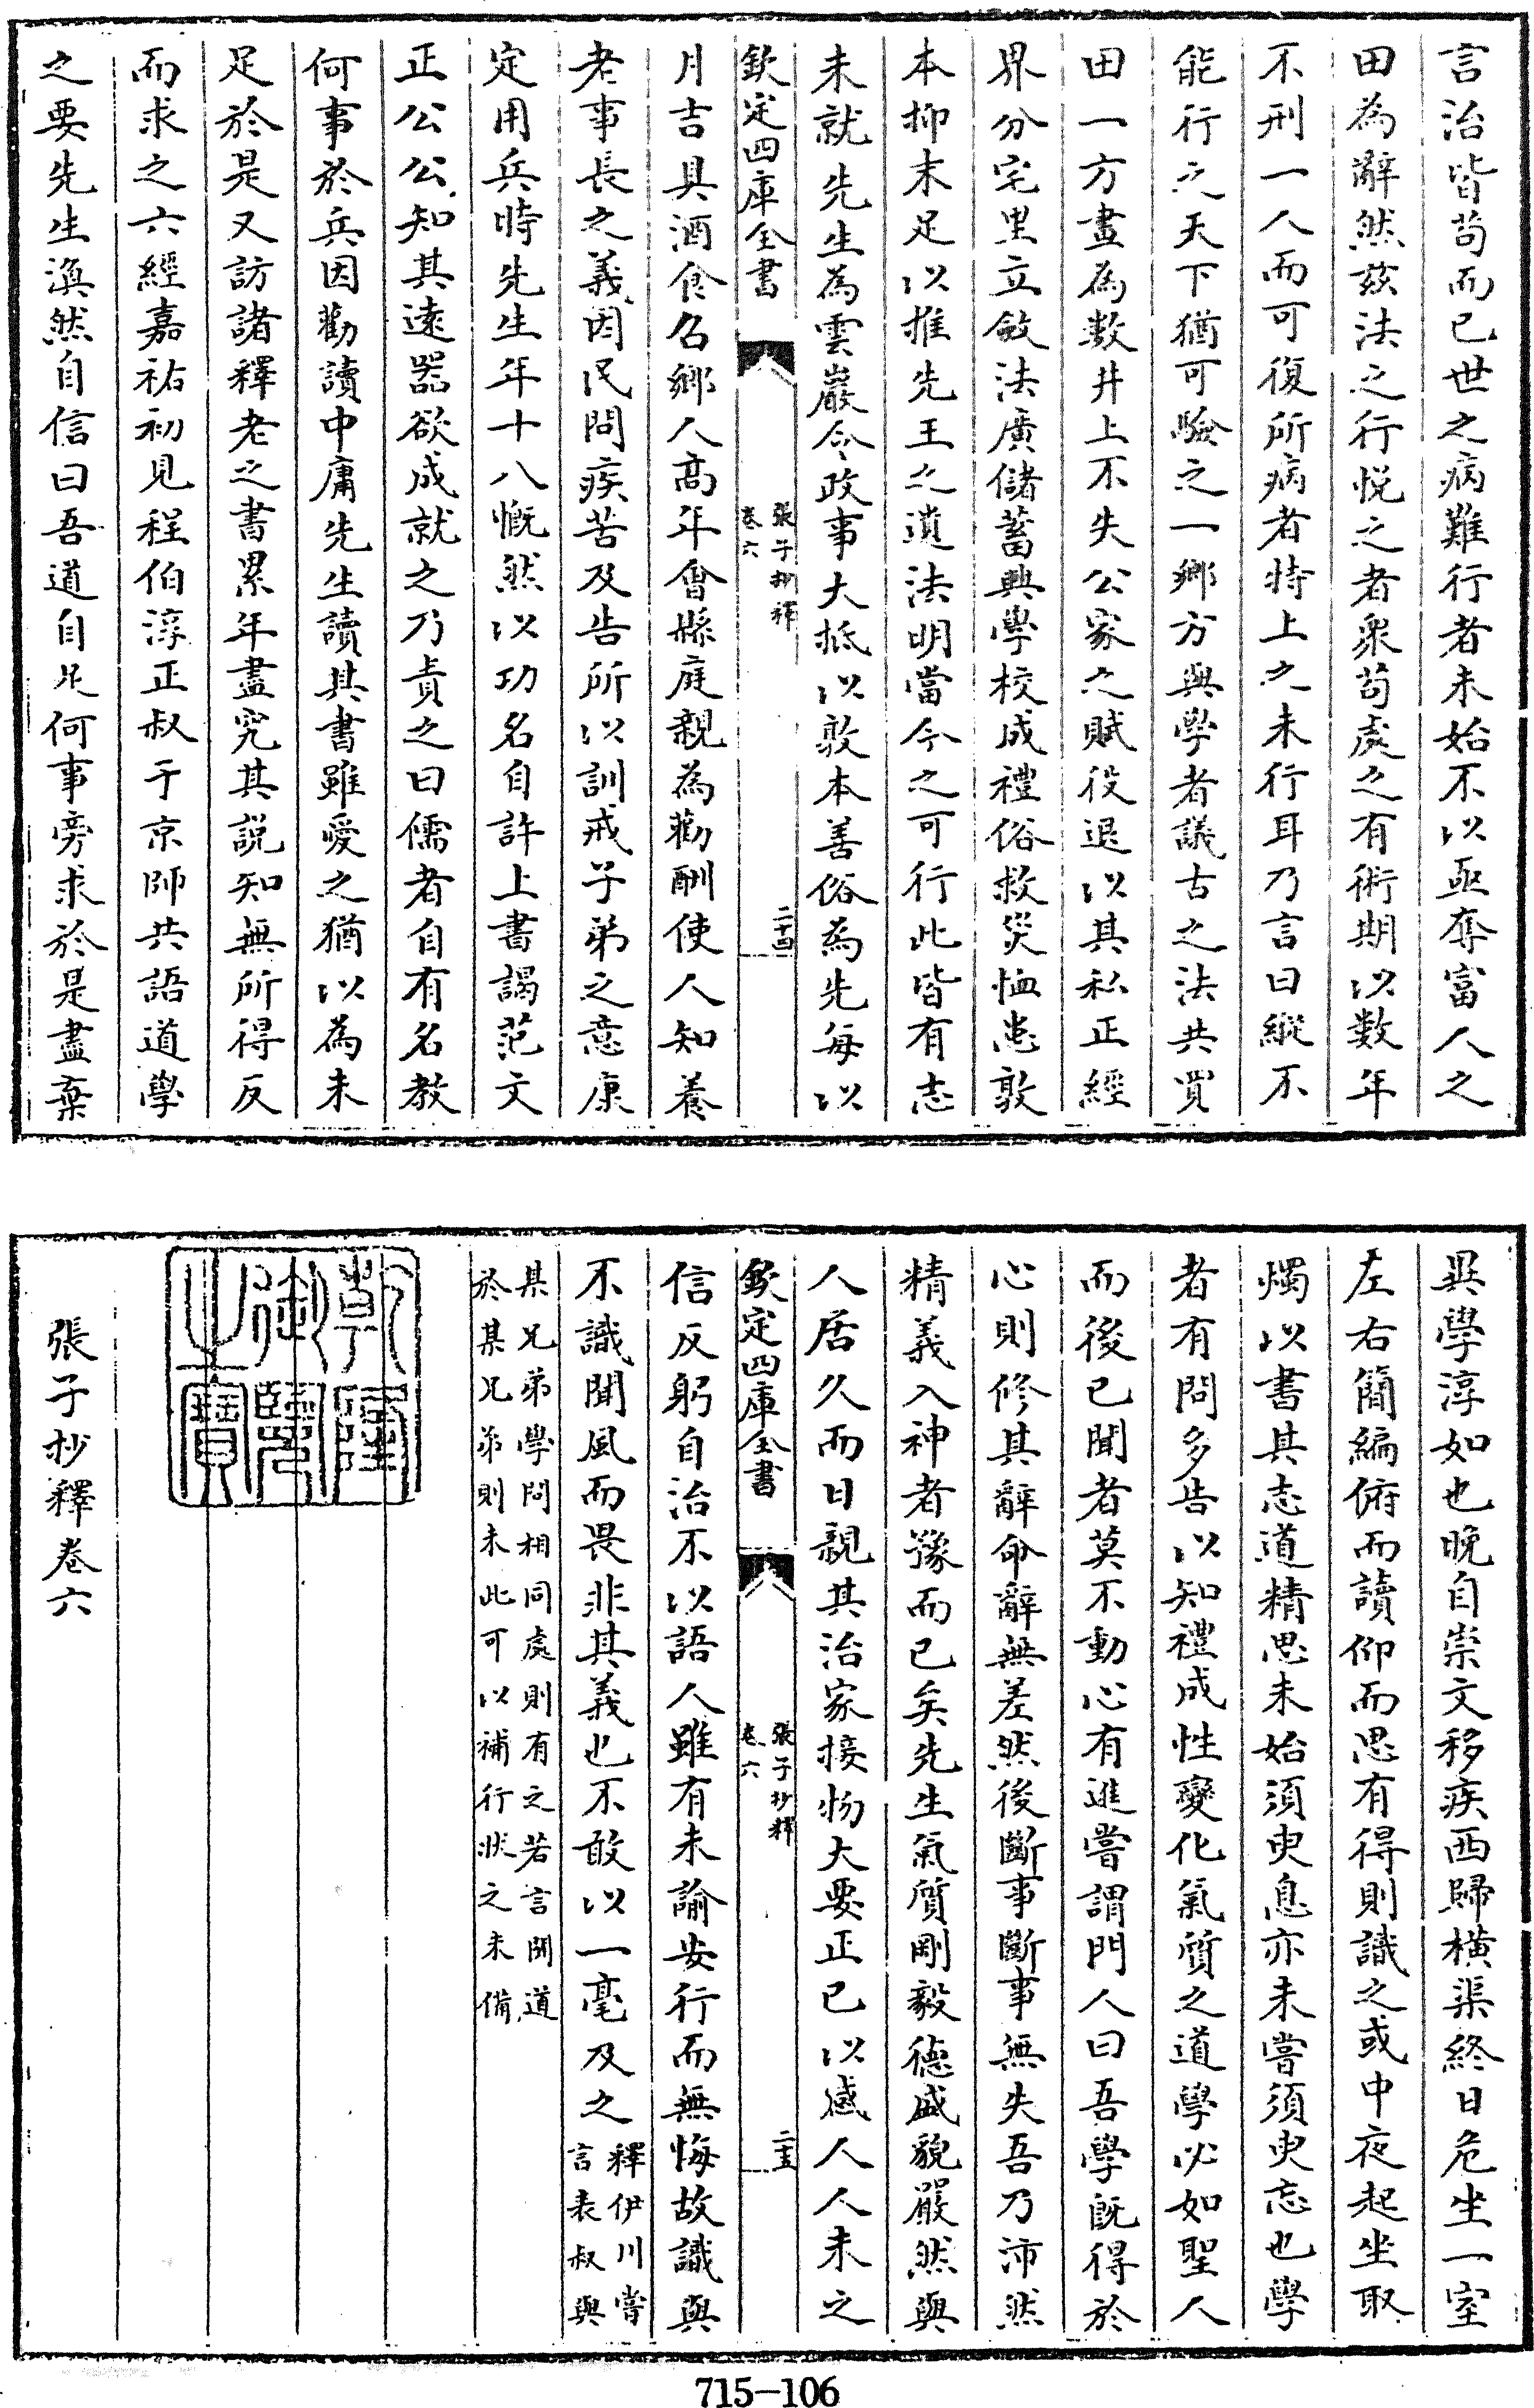 言治皆苟而已世之病難行者未始不以亟奪富人之
田為辭然茲法之行悅之者衆苟處之有術期以數年
不刑一人而可復所病者特上之未行耳乃言曰縱不
能行之天下猶可驗之一鄉方與學者議古之法共買
田一方畫為數井上不失公家之賦役退以其私正經
界分宅里立斂法廣儲蓄興學校成禮俗救災恤患敦
本抑末足以推先王之遺法明當今之可行此皆有志
未就先生為雲巖令政事大抵以敦本善俗為先每以
欽定四庫全書
張子抄釋
卷六
二十四
月吉具酒食召鄉人高年會縣庭親為勸酬使人知養
老事長之義因民問疾苦及告所以訓戒子弟之意康
定用兵時先生年十八慨然以功名自許上書謁范文
正公公知其遠器欲成就之乃責之曰儒者自有名教
何事於兵因勸讀中庸先生讀其書雖愛之猶以為未
足於是又訪諸釋老之書累年盡究其說知無所得反
而求之六經嘉祐初見程伯淳正叔于京師共語道學
之要先生渙然自信曰吾道自足何事旁求於是盡棄
異學淳如也晚自崇文移疾西歸橫渠終日危坐一室
左右簡編俯而讀仰而思有得則識之或中夜起坐取
燭以書其志道精思未始須臾息亦未嘗須臾忘也學
者有問多告以知禮成性變化氣質之道學必如聖人
而後已聞者莫不動心有進嘗謂門人曰吾學既得於
心則修其辭命辭無差然後斷事斷事無失吾乃沛然
精義入神者豫而已矣先生氣質剛毅德盛貌嚴然與
人居久而日親其治家接物大要正已以感人人未之
欽定四庫全書
張子抄釋
卷六
二十五
信反躬自治不以語人雖有未諭安行而無悔故識與
不識聞風而畏非其義也不敢以一毫及之
釋伊川嘗
言表叔與
其兄弟學問相同處則有之若言聞道
於某兄弟則未此可以補行狀之未備
乾隆
御覽
之寶
張子抄釋卷六
715-106